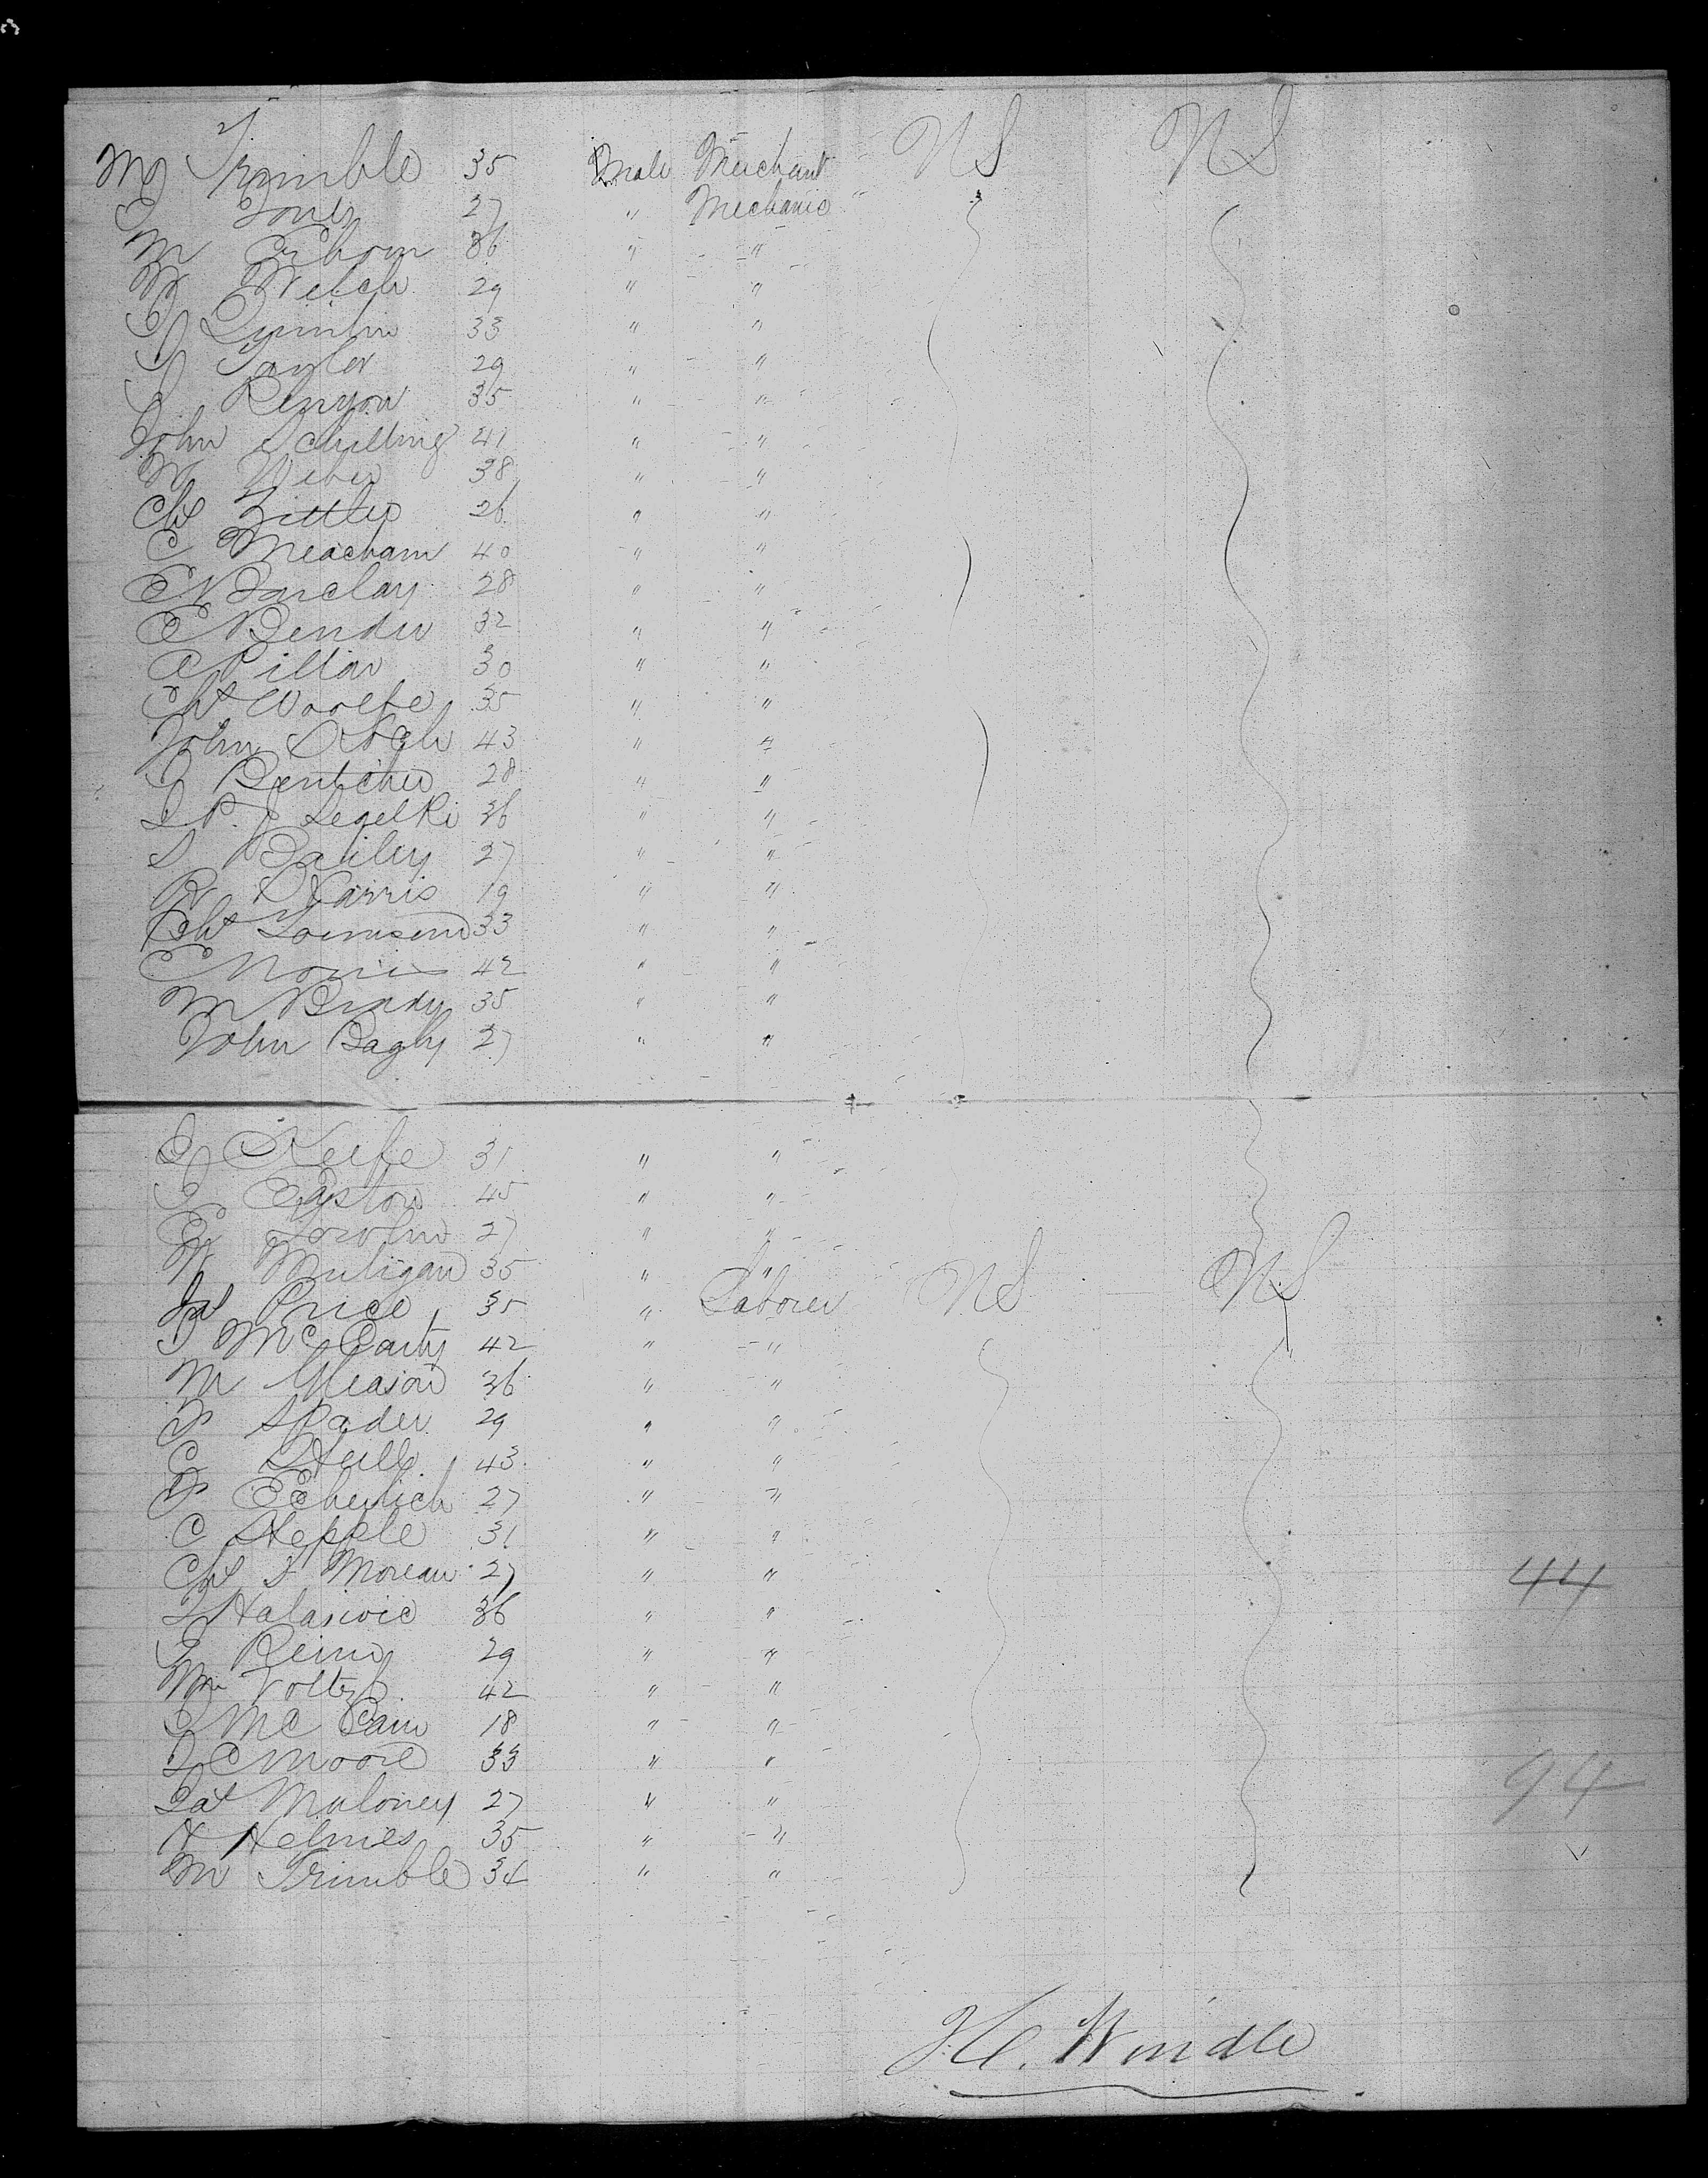 M Trimble 35 Male Merchant NS NS
Jones 27 " Mechanic
M Osborn 36 " "
M Welch 29 " "
J Quinlin 33 " "
J Taylor 29 " "
J Kenyon 35 " "
John Schilling 41 " "
M Weber 38 " "
Chs 26 " "
C Meacham 40 " "
C Barclay 28 " "
C Bender 32 " "
A Pillar 30 " "
Chs Woolfe 35 " "
John 43 " "
J 28 " "
P. J Segelki 36 " "
S Bailey 27 " "
R Harris 19 " "
Chs Townsend 33 " "
C Morris 42 " "
M Brady 35 " "
John Bagly 27 " "
J Keefe 31 " "
J Easton 45 " "
27 " "
M Muligan 35 " "
Jas Price 35 " Laborer NS NS
J McCarty 42 " "
M Gleason 36 " "
F Spader 29 " "
C Hull 43 " "
F 27 " "
C Hepple 31 " "
Chs F Moreau 27 " " 44
Halasivic 36 " "
J 29 " "
Wm Voltz 42 " "
J McCain 18 " "
J C Moore 33 " " 94
Pat Maloney 27 " "
H Helmes 35 " "
M Trimble 34 " "
H. Windle